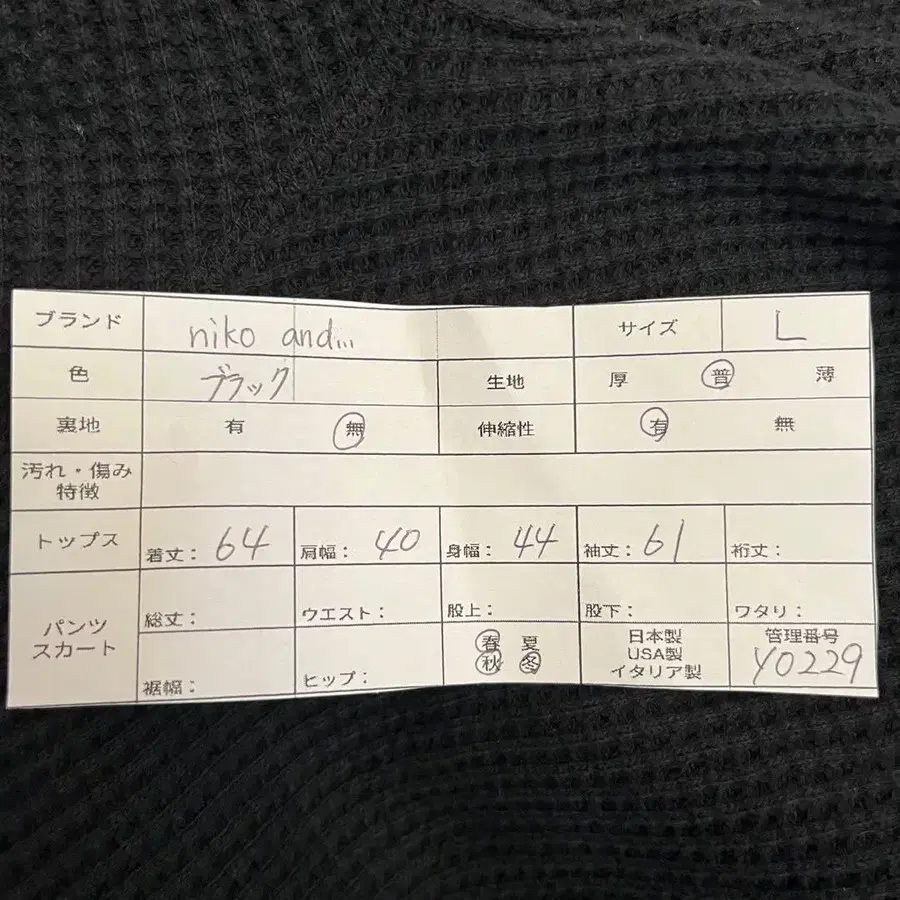 ブランド niko and... サイズ L
色 ブラック 生地 厚 普 薄
裏地 有 無 伸縮性 有 無
汚れ・傷み
特徴
トップス 着丈: 64 肩幅: 40 身幅: 44 袖丈: 61 裄丈:
パンツ
スカート
総丈: ウエスト: 股上: 股下: ワタリ:
裾幅: ヒップ:
春 夏
秋 冬
日本製
USA製
イタリア製
管理番号
Y0229